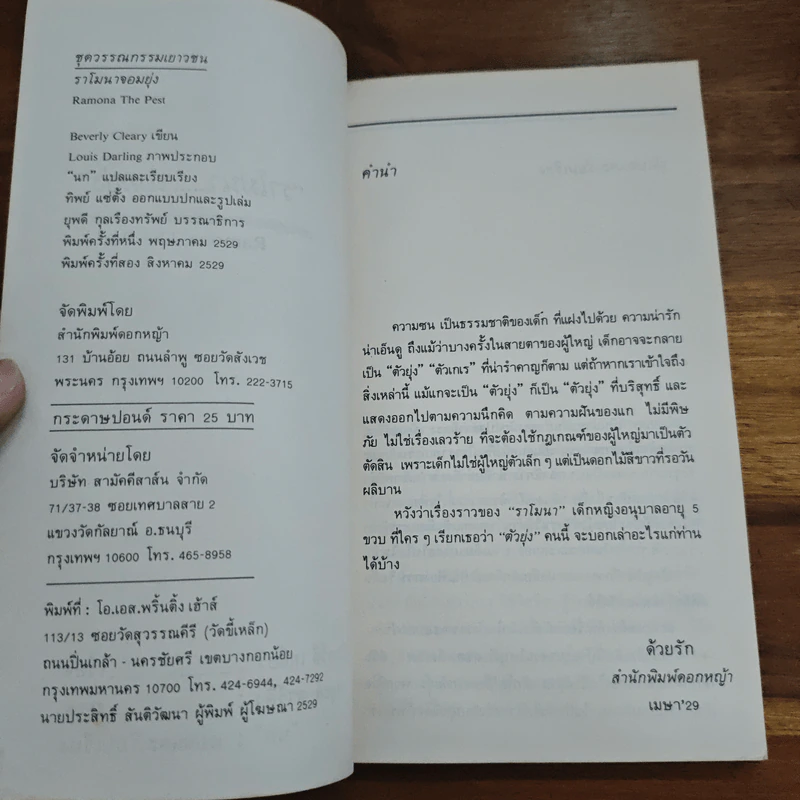 ชุดวรรณกรรมเยาวชน
ราโมนาจอมยุ่ง
Ramona The Pest
Beverly Cleary เขียน
Louis Darling ภาพประกอบ
“นก” แปลและเรียบเรียง
ทิพย์ แซ่ตั้ง ออกแบบปกและรูปเล่ม
ยุพดี กุลเรืองทรัพย์ บรรณาธิการ
พิมพ์ครั้งที่หนึ่ง พฤษภาคม 2529
พิมพ์ครั้งที่สอง สิงหาคม 2529
จัดพิมพ์โดย
สำนักพิมพ์ดอกหญ้า
131 บ้านอ้อย ถนนลำพู ซอยวัดสังเวช
พระนคร กรุงเทพฯ 10200 โทร. 222-3715
กระดาษปอนด์ ราคา 25 บาท
จัดจำหน่ายโดย
บริษัท สามัคคีสาส์น จำกัด
71/37-38 ซอยเทศบาลสาย 2
แขวงวัดกัลยาณ์ อ.ธนบุรี
กรุงเทพฯ 10600 โทร. 465-8958
พิมพ์ที่ : โอ.เอส.พริ้นติ้ง เฮ้าส์
113/13 ซอยวัดสุวรรณคีรี (วัดขี้เหล็ก)
ถนนปิ่นเกล้า - นครชัยศรี เขตบางกอกน้อย
กรุงเทพมหานคร 10700 โทร. 424-6944, 424-7292
นายประสิทธิ์ สันติวัฒนา ผู้พิมพ์ ผู้โฆษณา 2529
คำนำ
ความซน เป็นธรรมชาติของเด็ก ที่แฝงไปด้วย ความน่ารัก
น่าเอ็นดู ถึงแม้ว่าบางครั้งในสายตาของผู้ใหญ่ เด็กอาจจะกลาย
เป็น “ตัวยุ่ง” “ตัวเกเร” ที่น่ารำคาญก็ตาม แต่ถ้าหากเราเข้าใจถึง
สิ่งเหล่านี้ แม้แกจะเป็น “ตัวยุ่ง” ก็เป็น “ตัวยุ่ง” ที่บริสุทธิ์ และ
แสดงออกไปตามความนึกคิด ตามความฝันของแก ไม่มีพิษ
ภัย ไม่ใช่เรื่องเลวร้าย ที่จะต้องใช้กฎเกณฑ์ของผู้ใหญ่มาเป็นตัว
ตัดสิน เพราะเด็กไม่ใช่ผู้ใหญ่ตัวเล็ก ๆ แต่เป็นดอกไม้สีขาวที่รอวัน
ผลิบาน
หวังว่าเรื่องราวของ “ราโมนา” เด็กหญิงอนุบาลอายุ 5
ขวบ ที่ใคร ๆ เรียกเธอว่า “ตัวยุ่ง” คนนี้ จะบอกเล่าอะไรแก่ท่าน
ได้บ้าง
ด้วยรัก
สำนักพิมพ์ดอกหญ้า
เมษา’29